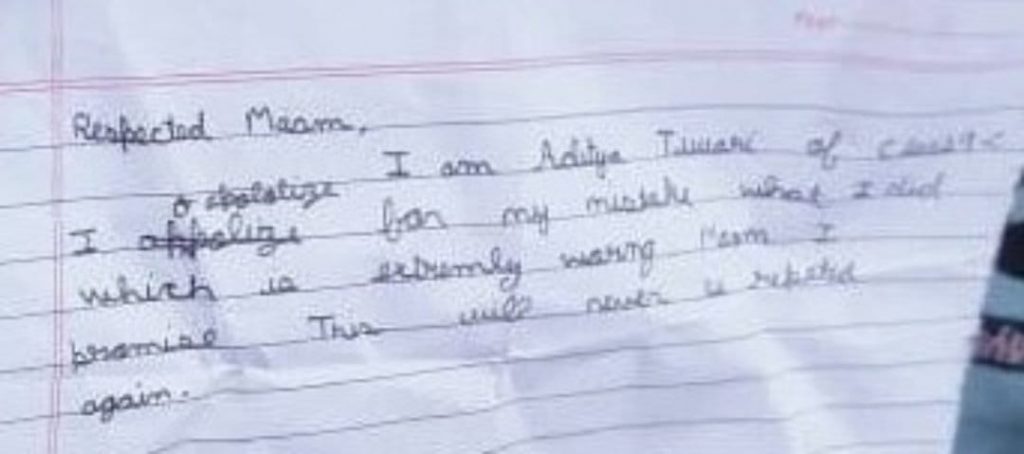 Respected Maam,
I am Aditya Tiwari of class 9 C
apolotize
I appolize for my mistake what I did
which is extremly warng Maam I
promise This will never is repated
again.